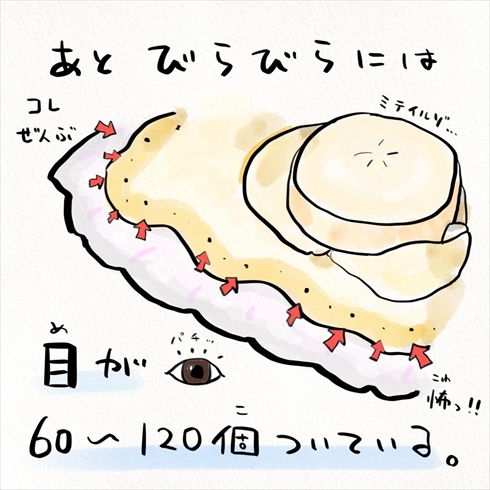 あと びらびらには
コレ
ぜんぶ
ミテイルゾ…
目が
め
パチッ
こわ
怖っ!!
こ
60〜120個ついている。